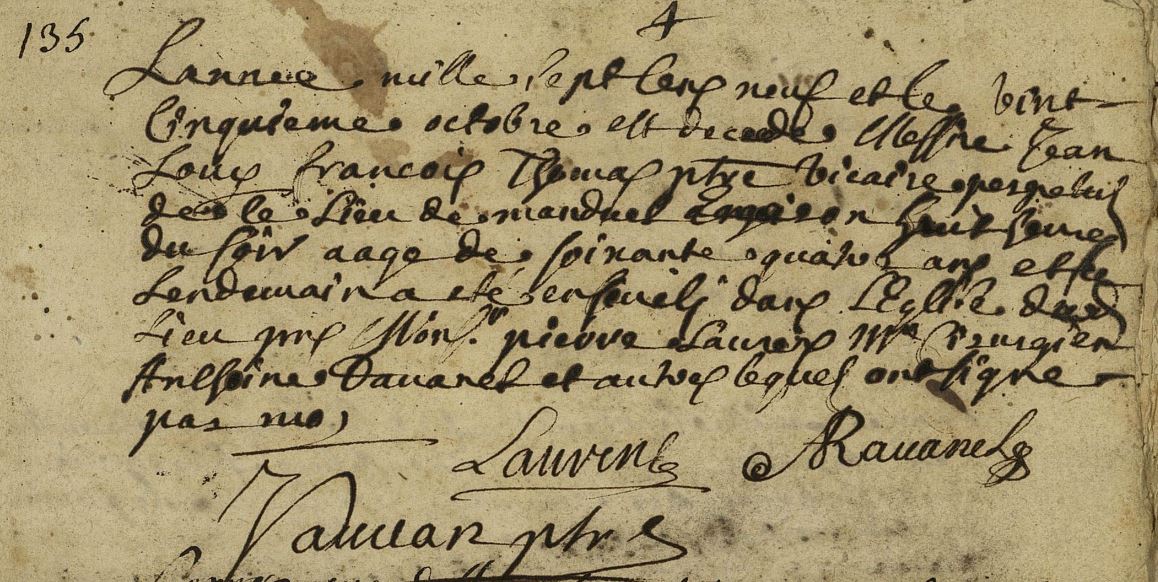 135
Lannee mille sept cens neuf et le vint
cinquieme octobre est decede Messire Jean
Louis francois Thomas ptre vicaire perpetuel
de le Lieu de manduel environ huit heures
du soir aage de soixante quatre ans et le
Lendemain a ete enseveli dans LEglise dud
Lieu pns Monsr pierre Laurens Mre Cirurgien
Anthoine Ravanel et autres lequels ont signe
par moy
Laurens ARavanel
ptre